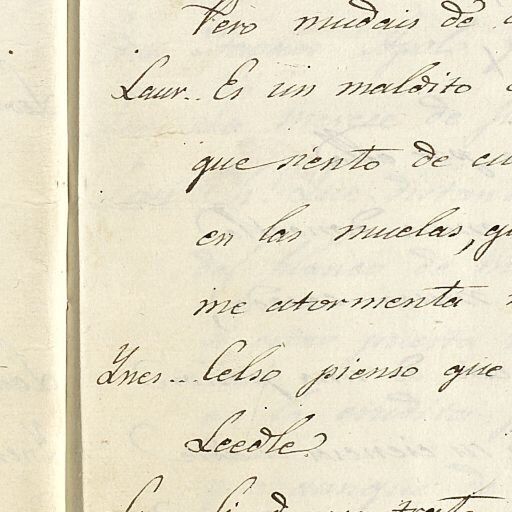 Pero mudais de
Laur.. Es un maldito
que siento de
en las muelas,
me atormenta
Ynes... Celso pienso que
Leedle.